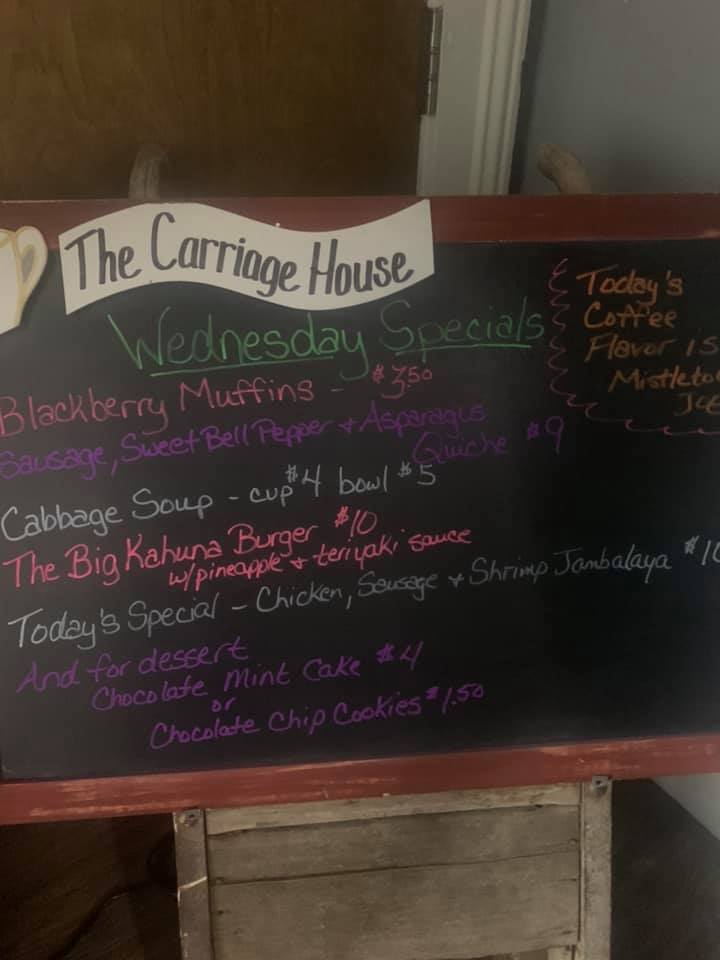 The Carriage House
Wednesday Specials
Blackberry Muffins - $3.50
Sausage, Sweet Bell Pepper + Asparagus
Quiche $9
Cabbage Soup - cup $4 bowl $5
The Big Kahuna Burger $10
w/pineapple + teriyaki sauce
Today's Special - Chicken, Sausage + Shrimp Jambalaya
And for dessert
Chocolate Mint Cake $4
or
Chocolate Chip Cookies $1.50
Today's
Coffee
Flavor is